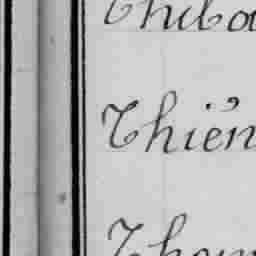 Thiba
Thién
Thom